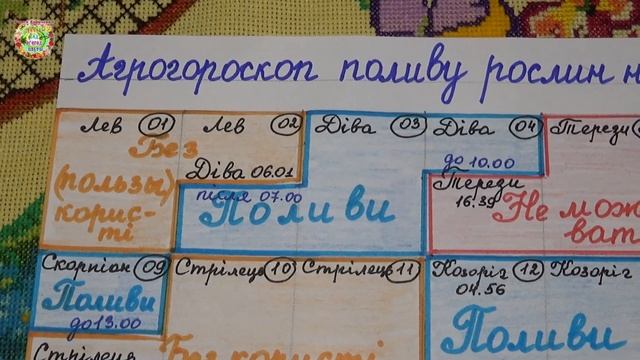 Агрогороскоп поливу рослин н
Лев 01 Лев 02 Діва 03 Діва 04 Терези
Без
Діва 06.01
(пользы)
корис-
ті
після 07.00
Поливи
до 10.00
Терези
16.39
Не мож
ват
Скорпіон 09 Стрілець 10 Стрілець 11 Козоріг 12 Козоріг
04.56
Поливи
до 13.00
Поливи
Стрілець
Без користі